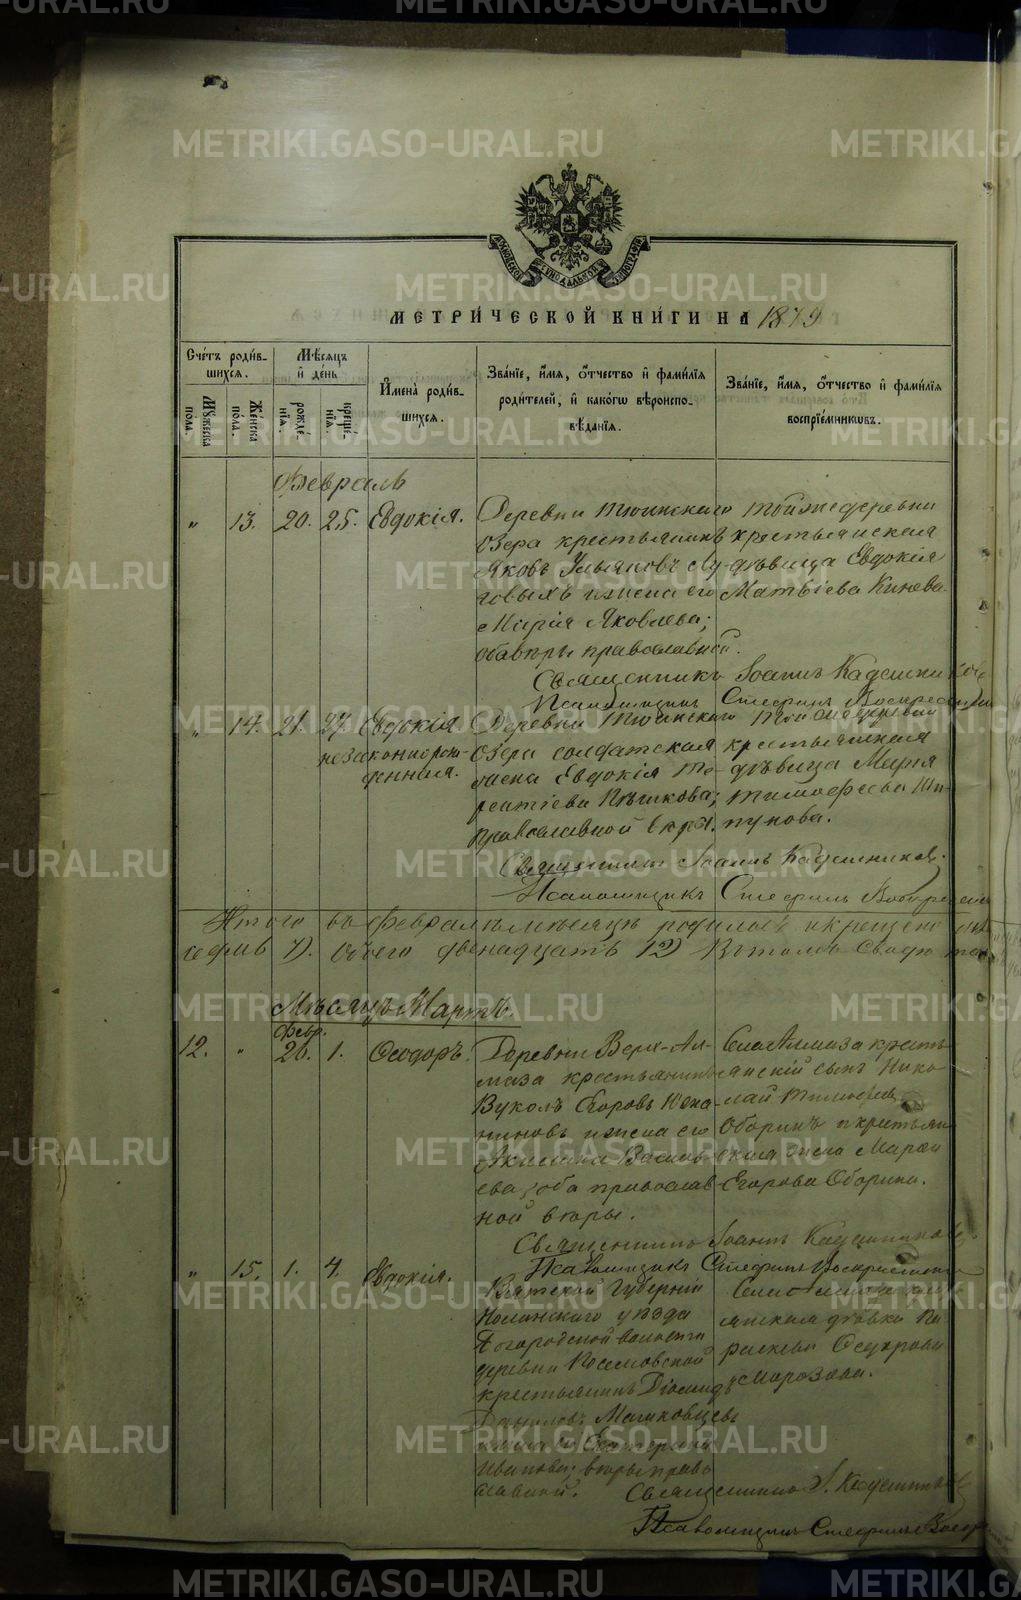 METRIKI.GASO-URAL.RU
МОСКОВСКОЙ СУНОДАЛЬНОЙ ТИПОГРАФІИ
МЕТРИ́ЧЕСКОЙ КНИ́ГИ НА 1879
Сче́тъ роди́в-
шихся.
Му́жеска
пола.
Же́нска
по́ла.
Мѣ́сяцъ
и҆ де́нь
рожде́-
нїѧ.
креще́-
нїѧ.
И҆мена̀ роди́в-
шихся.
Зва́нїе, и҆́мя, о҆́тчество и҆ фами́лїя
роди́телей, и҆ како́гѡ вѣроиспо-
вѣ́данїя.
Зва́нїе, и҆́мя, о҆́тчество и҆ фами́лїя
воспрїе́мникѡвъ.
Февраль
" 13. 20. 25. Евдокія.
Деревни Тюинскаго
Озера крестьянинъ
Яковъ Ульяновъ Лу-
говыхъ и жена его
Марія Яковлева;
оба вѣры православной.
Той же деревни
крестьянская
дѣвица Евдокія
Матвіева Кинева.
Священникъ Іоаннъ Кадешников
Псаломщикъ Стефанъ Воскресенскій
" 14. 21. 27. Евдокія
незаконнорож-
денная.
Деревни Тюинскаго
Озера солдатская
жена Евдокія Те-
рентіева Пѣшкова;
православной вѣры.
Той же деревни
крестьянская
дѣвица Марія
Тимофеева Ши-
пунова.
Священникъ Іоаннъ Кадешников.
Псаломщикъ Стефанъ Воскресенскій
Итого въ Февралѣ мѣсяцѣ родилось и крещено
седмь 7). Обоего двенадцать 12)
Мѣсяцъ Мартъ.
12. " Февр. 26. 1. Ѳеодоръ.
Деревни Верх-Ал-
маза крестьянинъ
Вуколъ Егоровъ
и жена его
Акилина Василь-
ева, оба православ-
ной вѣры.
Села Алмаза кресть-
янскій сынъ Нико-
лай Тимофеев
Оборинъ и крестьян-
ская жена
Егорова Оборина.
Священникъ Іоаннъ Кадешников.
Псаломщикъ Стефанъ Воскресенскій
" 15. 1. 4. Евдокія.
Вятской Губерніи
Нолинскаго уѣзда
Богородской волости
деревни
крестьянинъ Діомидъ
Даниловъ Машковцевъ
и жена его Екатерина
Иванова; вѣры право-
славной.
дѣвка Па-
раскева
Морозова.
Священникъ І. Кадешников
Псаломщикъ Стефанъ Воскр